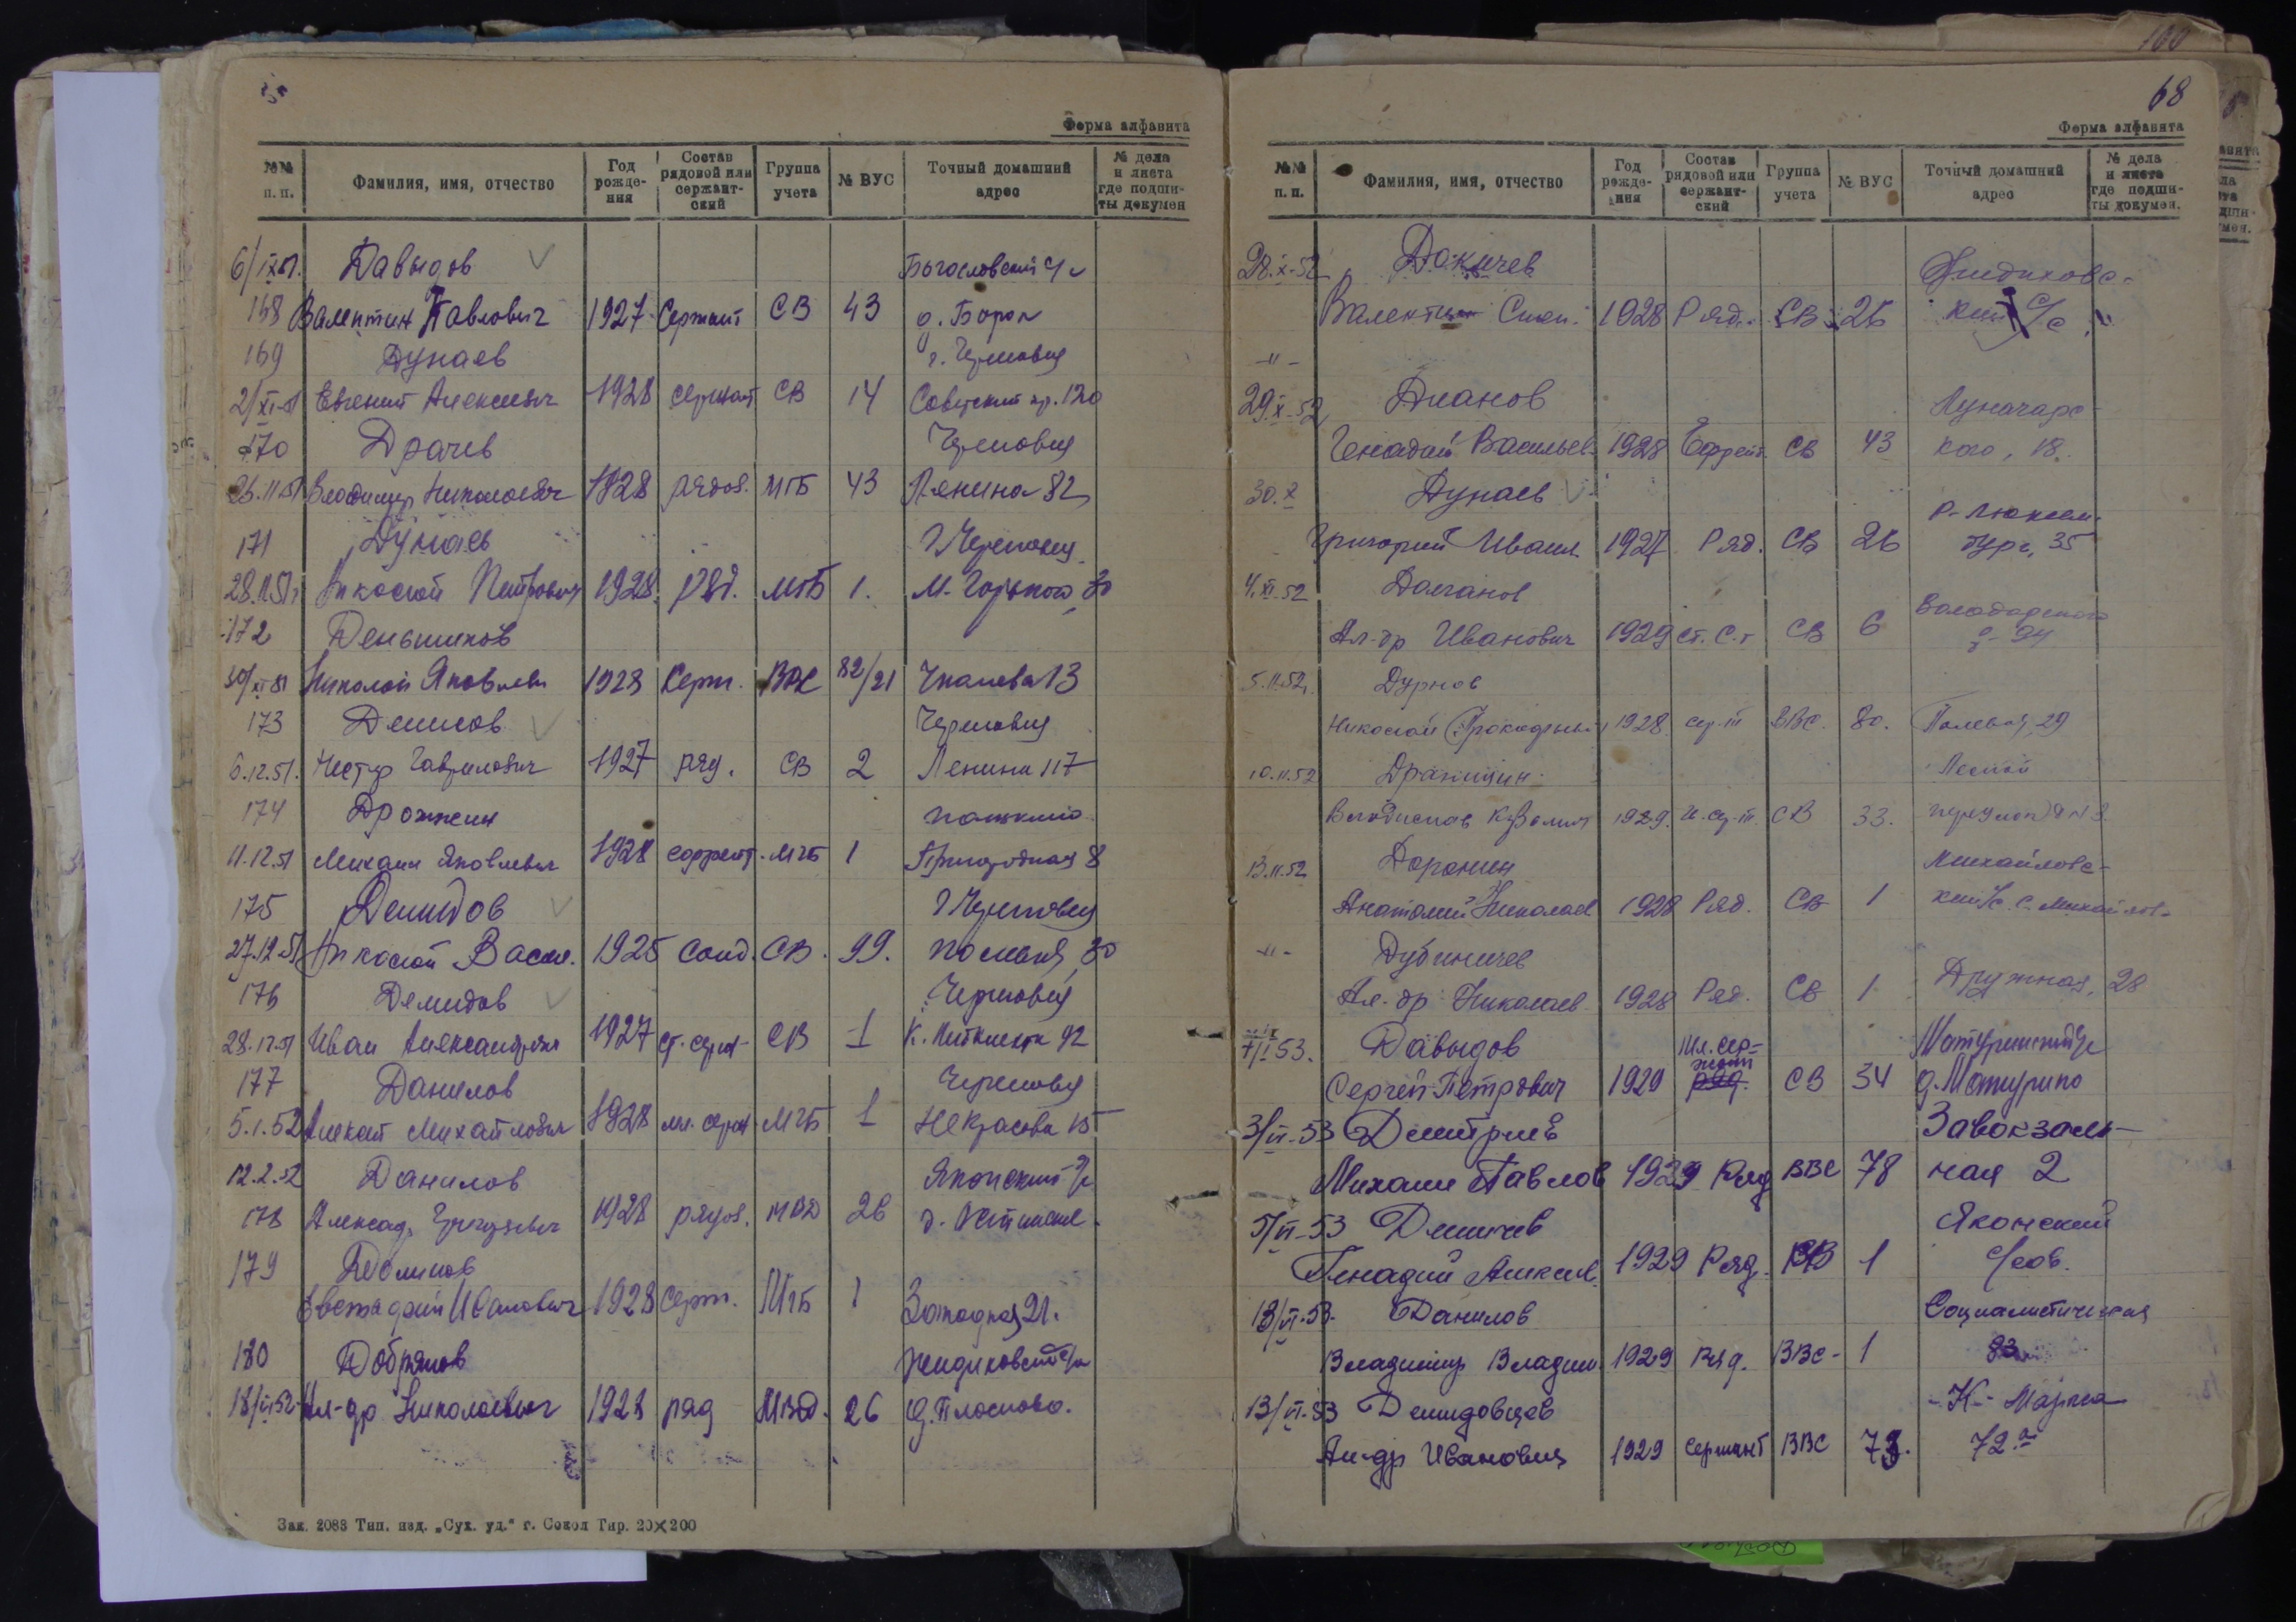 Форма алфавита
№№ п. п. Фамилия, имя, отчество Год рожде-ния Состав рядовой или сержант-ский Группа учета № ВУС Точный домашний адрес № дела и листа где подши-ты докумен
6/IX51. Давыдов Богословский с/с
168 Валентин Павлович 1927 Сержант СВ 43 д. Борок
169 Дунаев г. Череповец
2/XI-51 Евгений Алексеевич 1928 сержант СВ 14 Советский пр. 120
170 Драчев Череповец
26.11.51 Владимир Николаевич 1928 рядов. МГБ 43 Ленина 82
171 Дунаев г Череповец
28.11.51г Николай Петрович 1928 ряд. МГБ 1. М. Горького, 30
172 Деньшиков
30/XI 51 Николай Яковлевич 1928 Серж. ВВС 82/21 Чкалова 13
173 Денисов Череповец
6.12.51. Нестер Гаврилович 1927 ряд. СВ 2 Ленина 117
174 Дрожжин
11.12.51 Михаил Яковлевич 1928 ефрейт. МГБ 1 Пригородная 8
175 Демидов г Череповец
27.12.51 Николай Васил. 1925 Солд. СВ. 99. 30
176 Демидов Череповец
28.12.51 Иван Александрович 1927 ст. серж СВ 1 К. Либкнехта 92
177 Данилов Череповец
5.1.52 Алексей Михайлович 1928 мл. серж МГБ 1 Некрасова 15
12.2.52 Данилов Яконский с/с
178 Александ. Григорьевич 1928 рядов. МВД 26
179 Долинов
Евстафий Иванович 1928 Серж. МГБ 1 Западная 21.
180 Добряков Жидиховский с/с
18/VI52. Ал-др Николаевич 1928 ряд МВД. 26 д. Плосково.
Зак. 2083 Тип. изд. „Сух. уд.“ г. Сокол Тир. 20×200
100
68
Форма алфавита
№№ п. п. Фамилия, имя, отчество Год рожде-ния Состав рядовой или сержант-ский Группа учета № ВУС Точный домашний адрес № дела и листа где подши-ты докумен.
28.X-52 Докичев Жидиховс-
Валентин 1928 Ряд. СВ 26 кий с/с
-"-
29.X-52 Дианов Луначарс-
Генадий Васильев. 1928 Ефрейт. СВ 43 кого, 18.
30.X Дунаев Р-Люксем-
Григорий Иван. 1927 Ряд. СВ 26 бург, 35
4.XI.52 Долганов Володарского
Ал-др Иванович 1929 ст. с-т СВ 6
5.11.52г. Дурнов
Николай 1928 сер-т ВВС. 80. Полевая, 29
10.11.52 Дракицин Лесной
Владислав 1929. СВ 33.
13.11.52 Доронин Михайловс-
Анатолий Николаев 1928 Ряд. СВ 1 кий с/с с. Михайлов-
-"- Дубиничев
Ал-др Николаев. 1928 Ряд. СВ 1 Дружная, 28
53. Давыдов Мл. сер- Матуринский с/с
жант
Сергей Петрович 1929 ряд. СВ 34 д. Матурино
3/VI-53 Дмитриев Завокзаль-
Михаил Павлов 1929 Ряд ВВС 78 ная 2
5/VI-53 Демичев Яконский
Генадий Алексеев. 1929 Ряд. СВ 1 с/сов.
13/VI-53. Данилов Социалистическая
Владимир Владим. 1929 Ряд. ВВС- 1 83
13/VI-53 Демидовцев -К- Маркса
Ал-др Иванович 1929 Сержант ВВС 72а